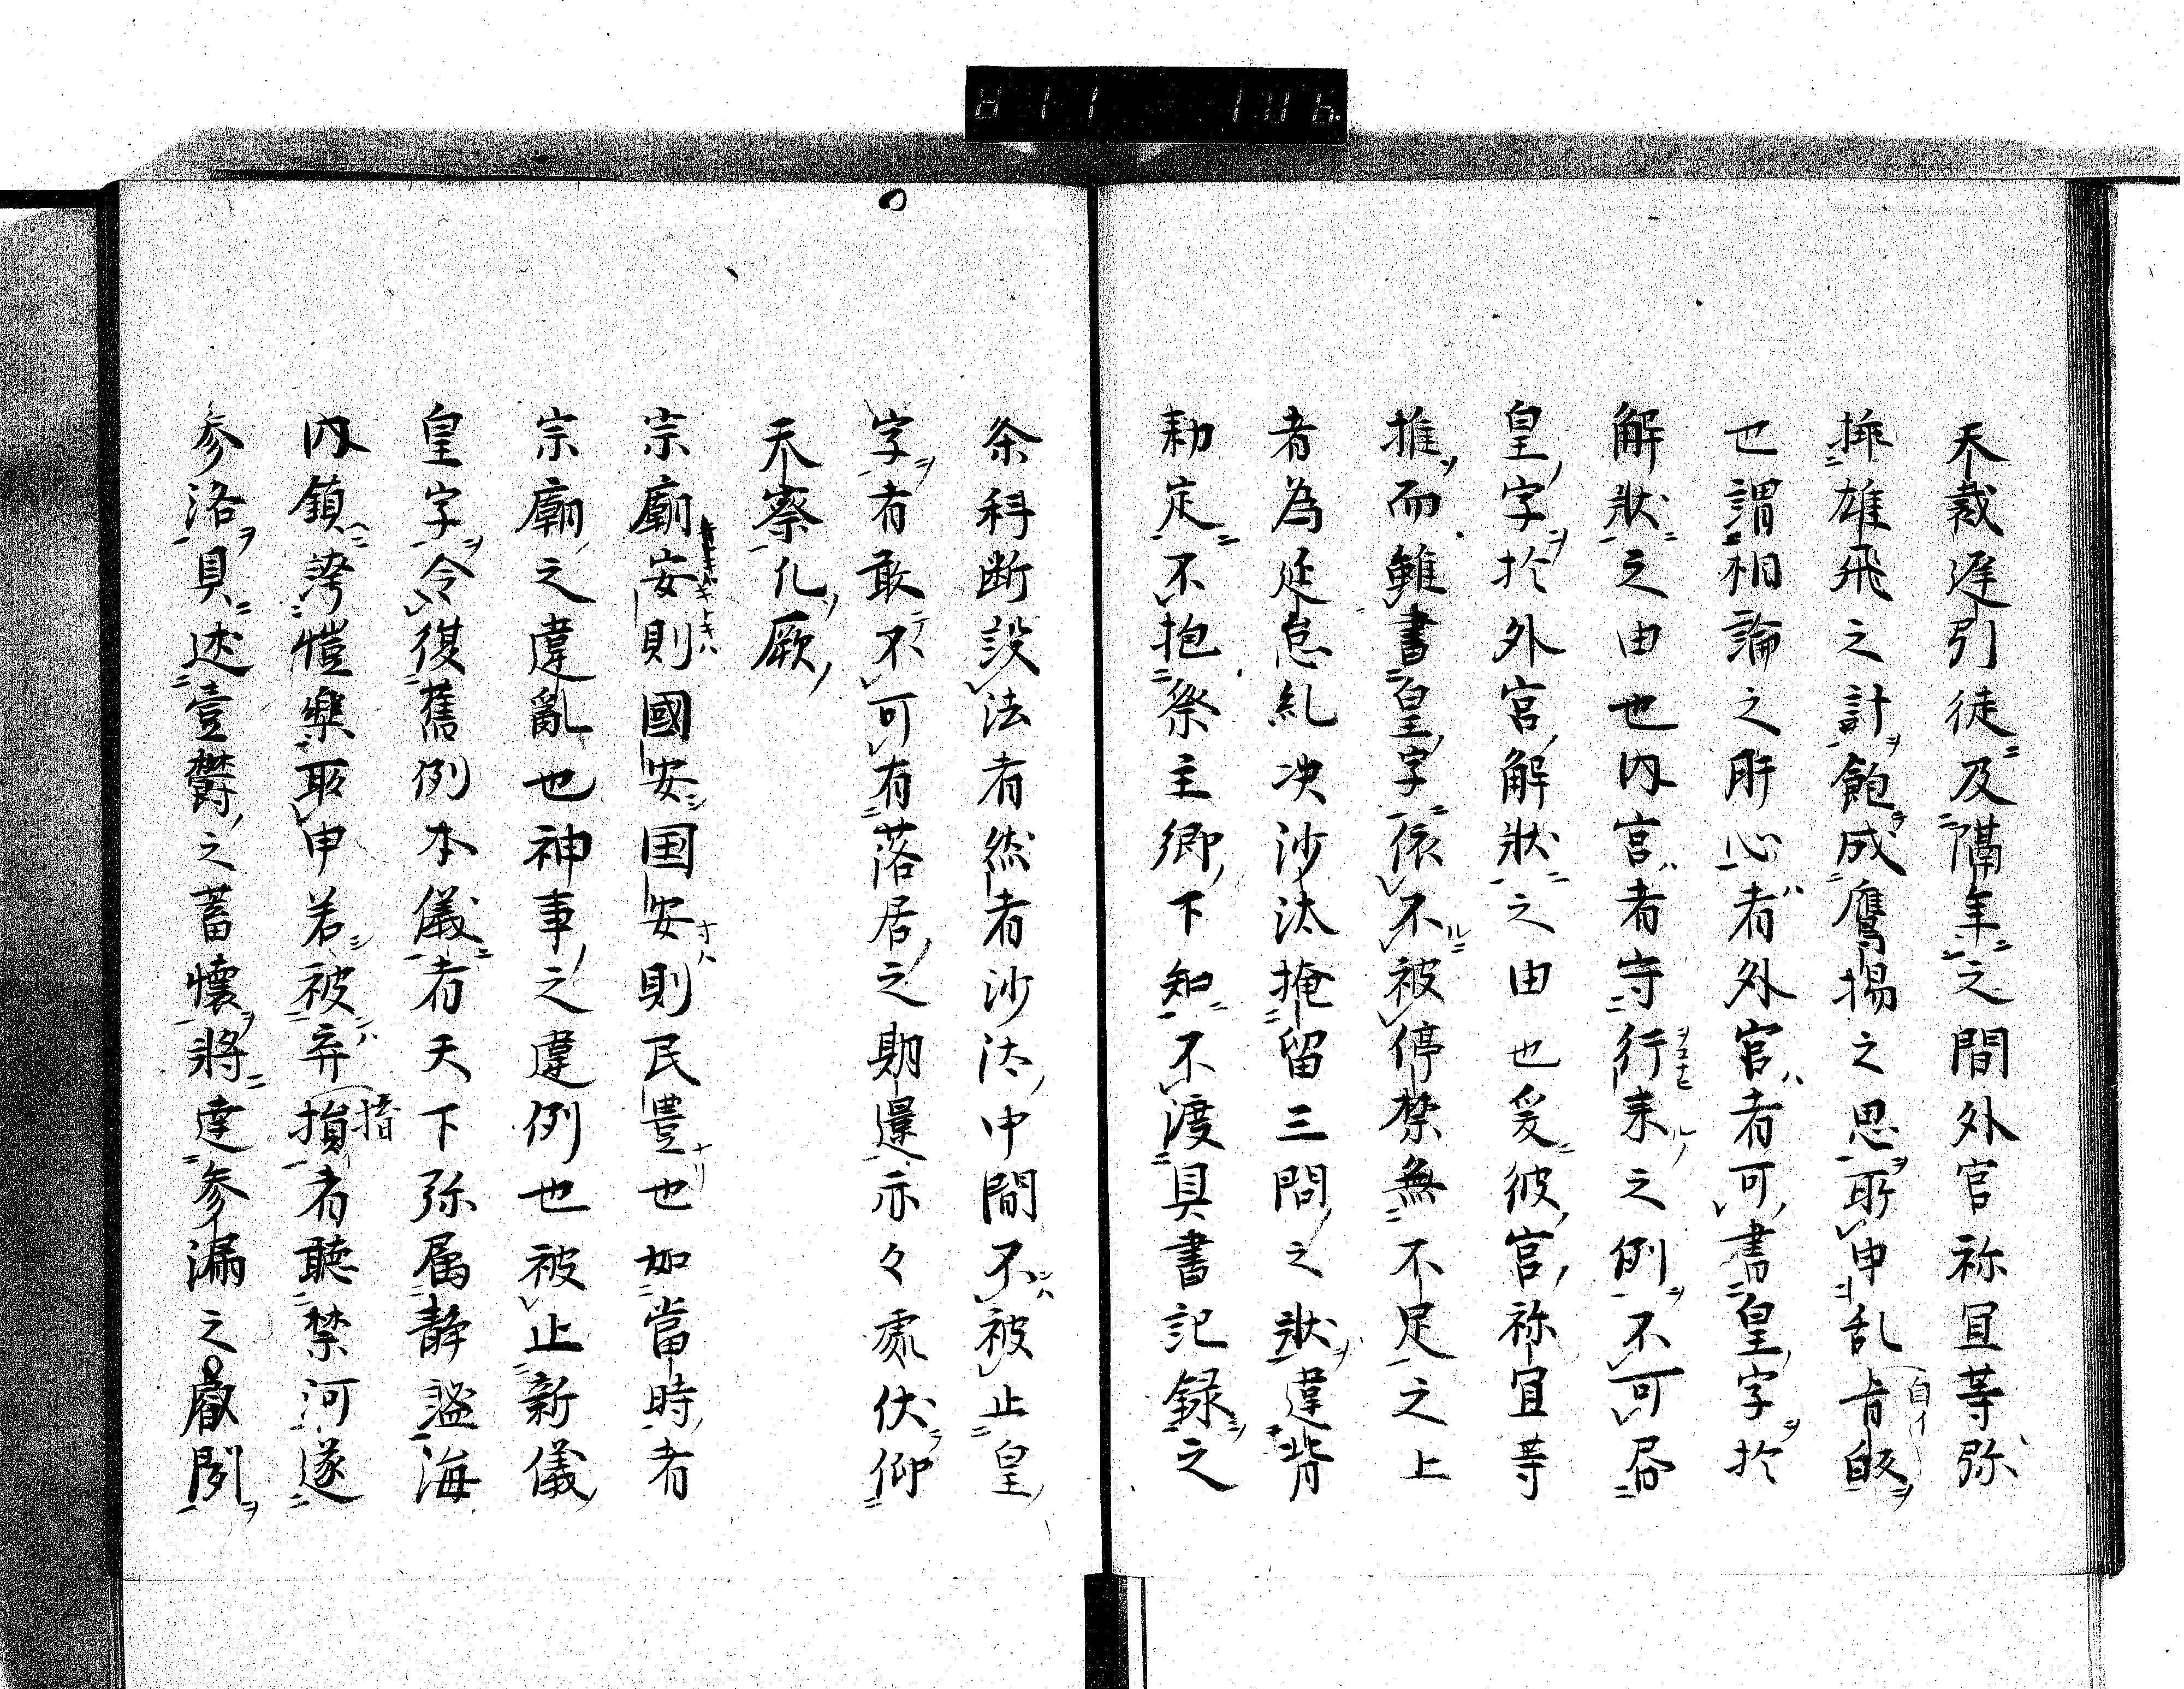 天裁遅引徒及隔年之間外宮祢宜等弥
挿雄飛之計飽成鷹揚之思所申乱旨
也謂相論之肝心者外宮者可書皇字於
解状之由也内宮者守行来之例不可居
皇字於外宮解状之由也爰彼宮祢宜等
推而雖書皇字依不被停禁無不足之上
者為延怠糺决沙汰掩留三問之状違背
勅定不抱祭主卿下知不渡具書記録之
条科断設法者然者沙汰中間不被止皇
字者敢不可有落居之期還亦々處伏仰
天察化厥
宗廟安則國安国安則民豊也如當時者
宗廟之違亂也神事之違例也被止新儀
皇字令復舊例本儀者天下弥属静謐海
内鎮誇愷樂取申若被弃損者聴禁河遂
参洛具述壹欝之蓄懐将達参漏之叡聞